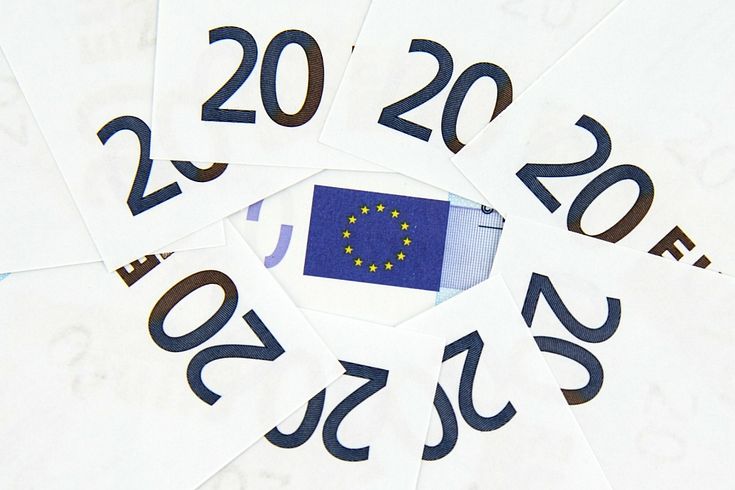 20
20
20
20 E
20
20
20
20 E
©